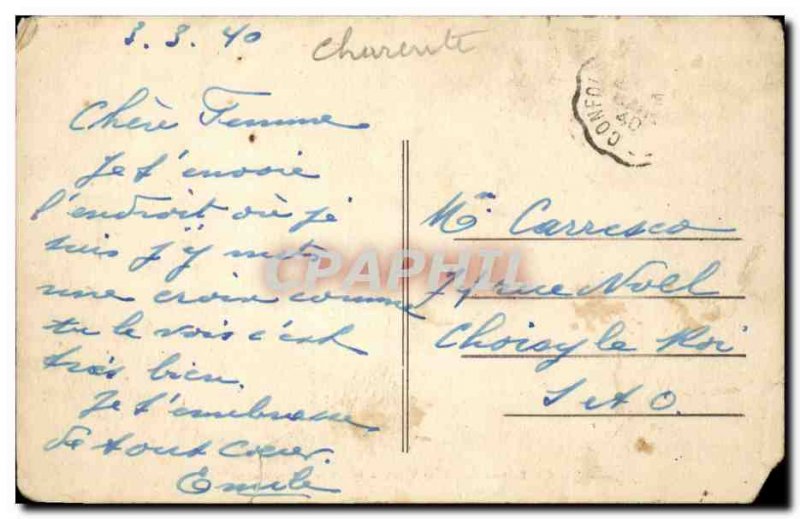 3.3.40
Charente
CONFOL
Chère Femme
Je t'envoie
l'endroit où je
suis j'y mets
une croix comme
tu le vois c'est
très bien.
Je t'embrasse
de tout cœur.
Emile
CPAPHIL
Me Carresco
rue Noël
Choisy le Roi
S et O.